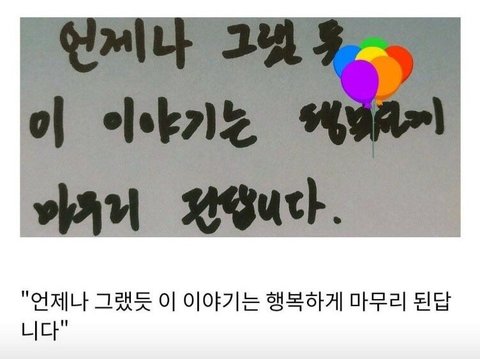 언제나 그랬 듯
이 이야기는 행복하게
마무리 된답니다.
"언제나 그랬듯 이 이야기는 행복하게 마무리 된답
니다"